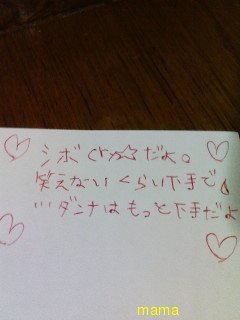 シボCよか☆だよ。
笑えないくらい下手で。
"ダンナはもっと下手だよ
mama